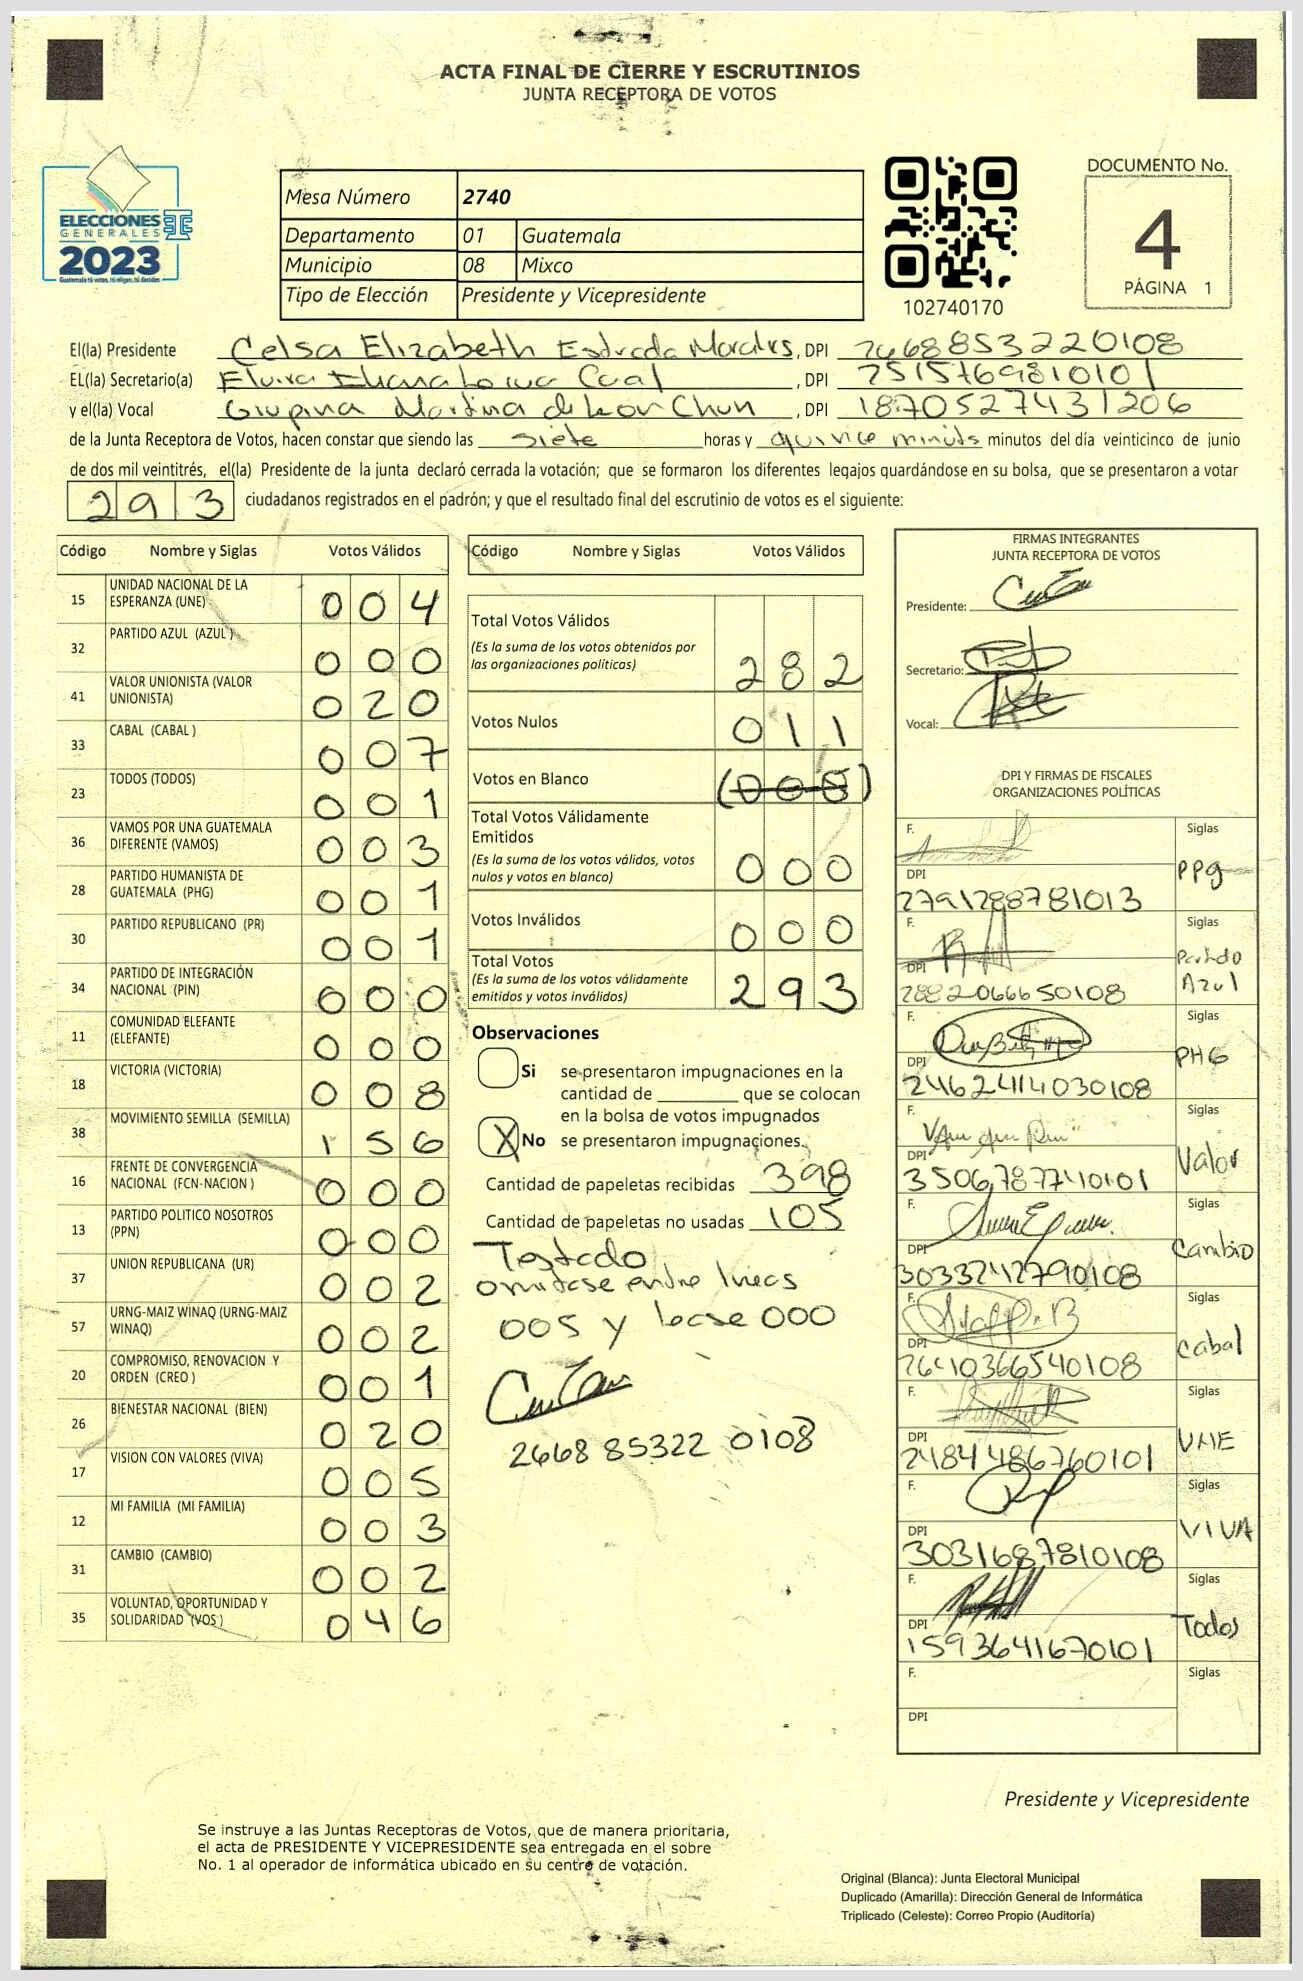 ACTA FINAL DE CIERRE Y ESCRUTINIOS
JUNTA RECEPTORA DE VOTOS
ELECCIONES
GENERALES
2023
Mesa Número 2740
Departamento 01 Guatemala
Municipio 08 Mixco
Tipo de Elección Presidente y Vicepresidente
102740170
DOCUMENTO No.
4
PÁGINA 1
El(la) Presidente Celsa Elizabeth Estrada Morales, DPI 2668853220108
EL(la) Secretario(a) Elvira Caal, DPI 2515769810101
y el(la) Vocal Martina de Leon Chun, DPI 1870527431206
de la Junta Receptora de Votos, hacen constar que siendo las siete horas y quince minuts minutos del día veinticinco de junio
de dos mil veintitrés, el(la) Presidente de la junta declaró cerrada la votación; que se formaron los diferentes legajos quardándose en su bolsa, que se presentaron a votar
293 ciudadanos registrados en el padrón; y que el resultado final del escrutinio de votos es el siguiente:
Código Nombre y Siglas Votos Válidos
15 UNIDAD NACIONAL DE LA ESPERANZA (UNE) 004
32 PARTIDO AZUL (AZUL ) 000
41 VALOR UNIONISTA (VALOR UNIONISTA) 020
33 CABAL (CABAL ) 007
23 TODOS (TODOS) 001
36 VAMOS POR UNA GUATEMALA DIFERENTE (VAMOS) 003
28 PARTIDO HUMANISTA DE GUATEMALA (PHG) 001
30 PARTIDO REPUBLICANO (PR) 001
34 PARTIDO DE INTEGRACIÓN NACIONAL (PIN) 000
11 COMUNIDAD ELEFANTE (ELEFANTE) 000
18 VICTORIA (VICTORIA) 008
38 MOVIMIENTO SEMILLA (SEMILLA) 156
16 FRENTE DE CONVERGENCIA NACIONAL (FCN-NACION ) 000
13 PARTIDO POLITICO NOSOTROS (PPN) 000
37 UNION REPUBLICANA (UR) 002
57 URNG-MAIZ WINAQ (URNG-MAIZ WINAQ) 002
20 COMPROMISO, RENOVACION Y ORDEN (CREO ) 001
26 BIENESTAR NACIONAL (BIEN) 020
17 VISION CON VALORES (VIVA) 005
12 MI FAMILIA (MI FAMILIA) 003
31 CAMBIO (CAMBIO) 002
35 VOLUNTAD, OPORTUNIDAD Y SOLIDARIDAD (VOS ) 046
Código Nombre y Siglas Votos Válidos
Total Votos Válidos
(Es la suma de los votos obtenidos por
las organizaciones políticas) 282
Votos Nulos 011
Votos en Blanco (005)
Total Votos Válidamente
Emitidos
(Es la suma de los votos válidos, votos
nulos y votos en blanco) 000
Votos Inválidos 000
Total Votos
(Es la suma de los votos válidamente
emitidos y votos inválidos) 293
Observaciones
Si se presentaron impugnaciones en la
cantidad de ________ que se colocan
en la bolsa de votos impugnados
X No se presentaron impugnaciones.
Cantidad de papeletas recibidas 398
Cantidad de papeletas no usadas 105
Testado
omitase entre lineas
005 y lease 000
2668 85322 0108
FIRMAS INTEGRANTES
JUNTA RECEPTORA DE VOTOS
Presidente:
Secretario:
Vocal:
DPI Y FIRMAS DE FISCALES
ORGANIZACIONES POLÍTICAS
F. Siglas
DPI PPg
2791288781013
F. Siglas
DPI Partido Azul
2882066650108
F. Siglas
DPI PHG
2462414030108
F. Siglas
DPI Valor
3506787740101
F. Siglas
DPI Cambio
3033242790108
F. Siglas
DPI Cabal
2640366540108
F. Siglas
DPI UNE
2484486760101
F. Siglas
DPI VIVA
3031687810108
F. Siglas
DPI Todos
1593641670101
F. Siglas
DPI
Presidente y Vicepresidente
Se instruye a las Juntas Receptoras de Votos, que de manera prioritaria,
el acta de PRESIDENTE Y VICEPRESIDENTE sea entregada en el sobre
No. 1 al operador de informática ubicado en su centro de votación.
Original (Blanca): Junta Electoral Municipal
Duplicado (Amarilla): Dirección General de Informática
Triplicado (Celeste): Correo Propio (Auditoría)